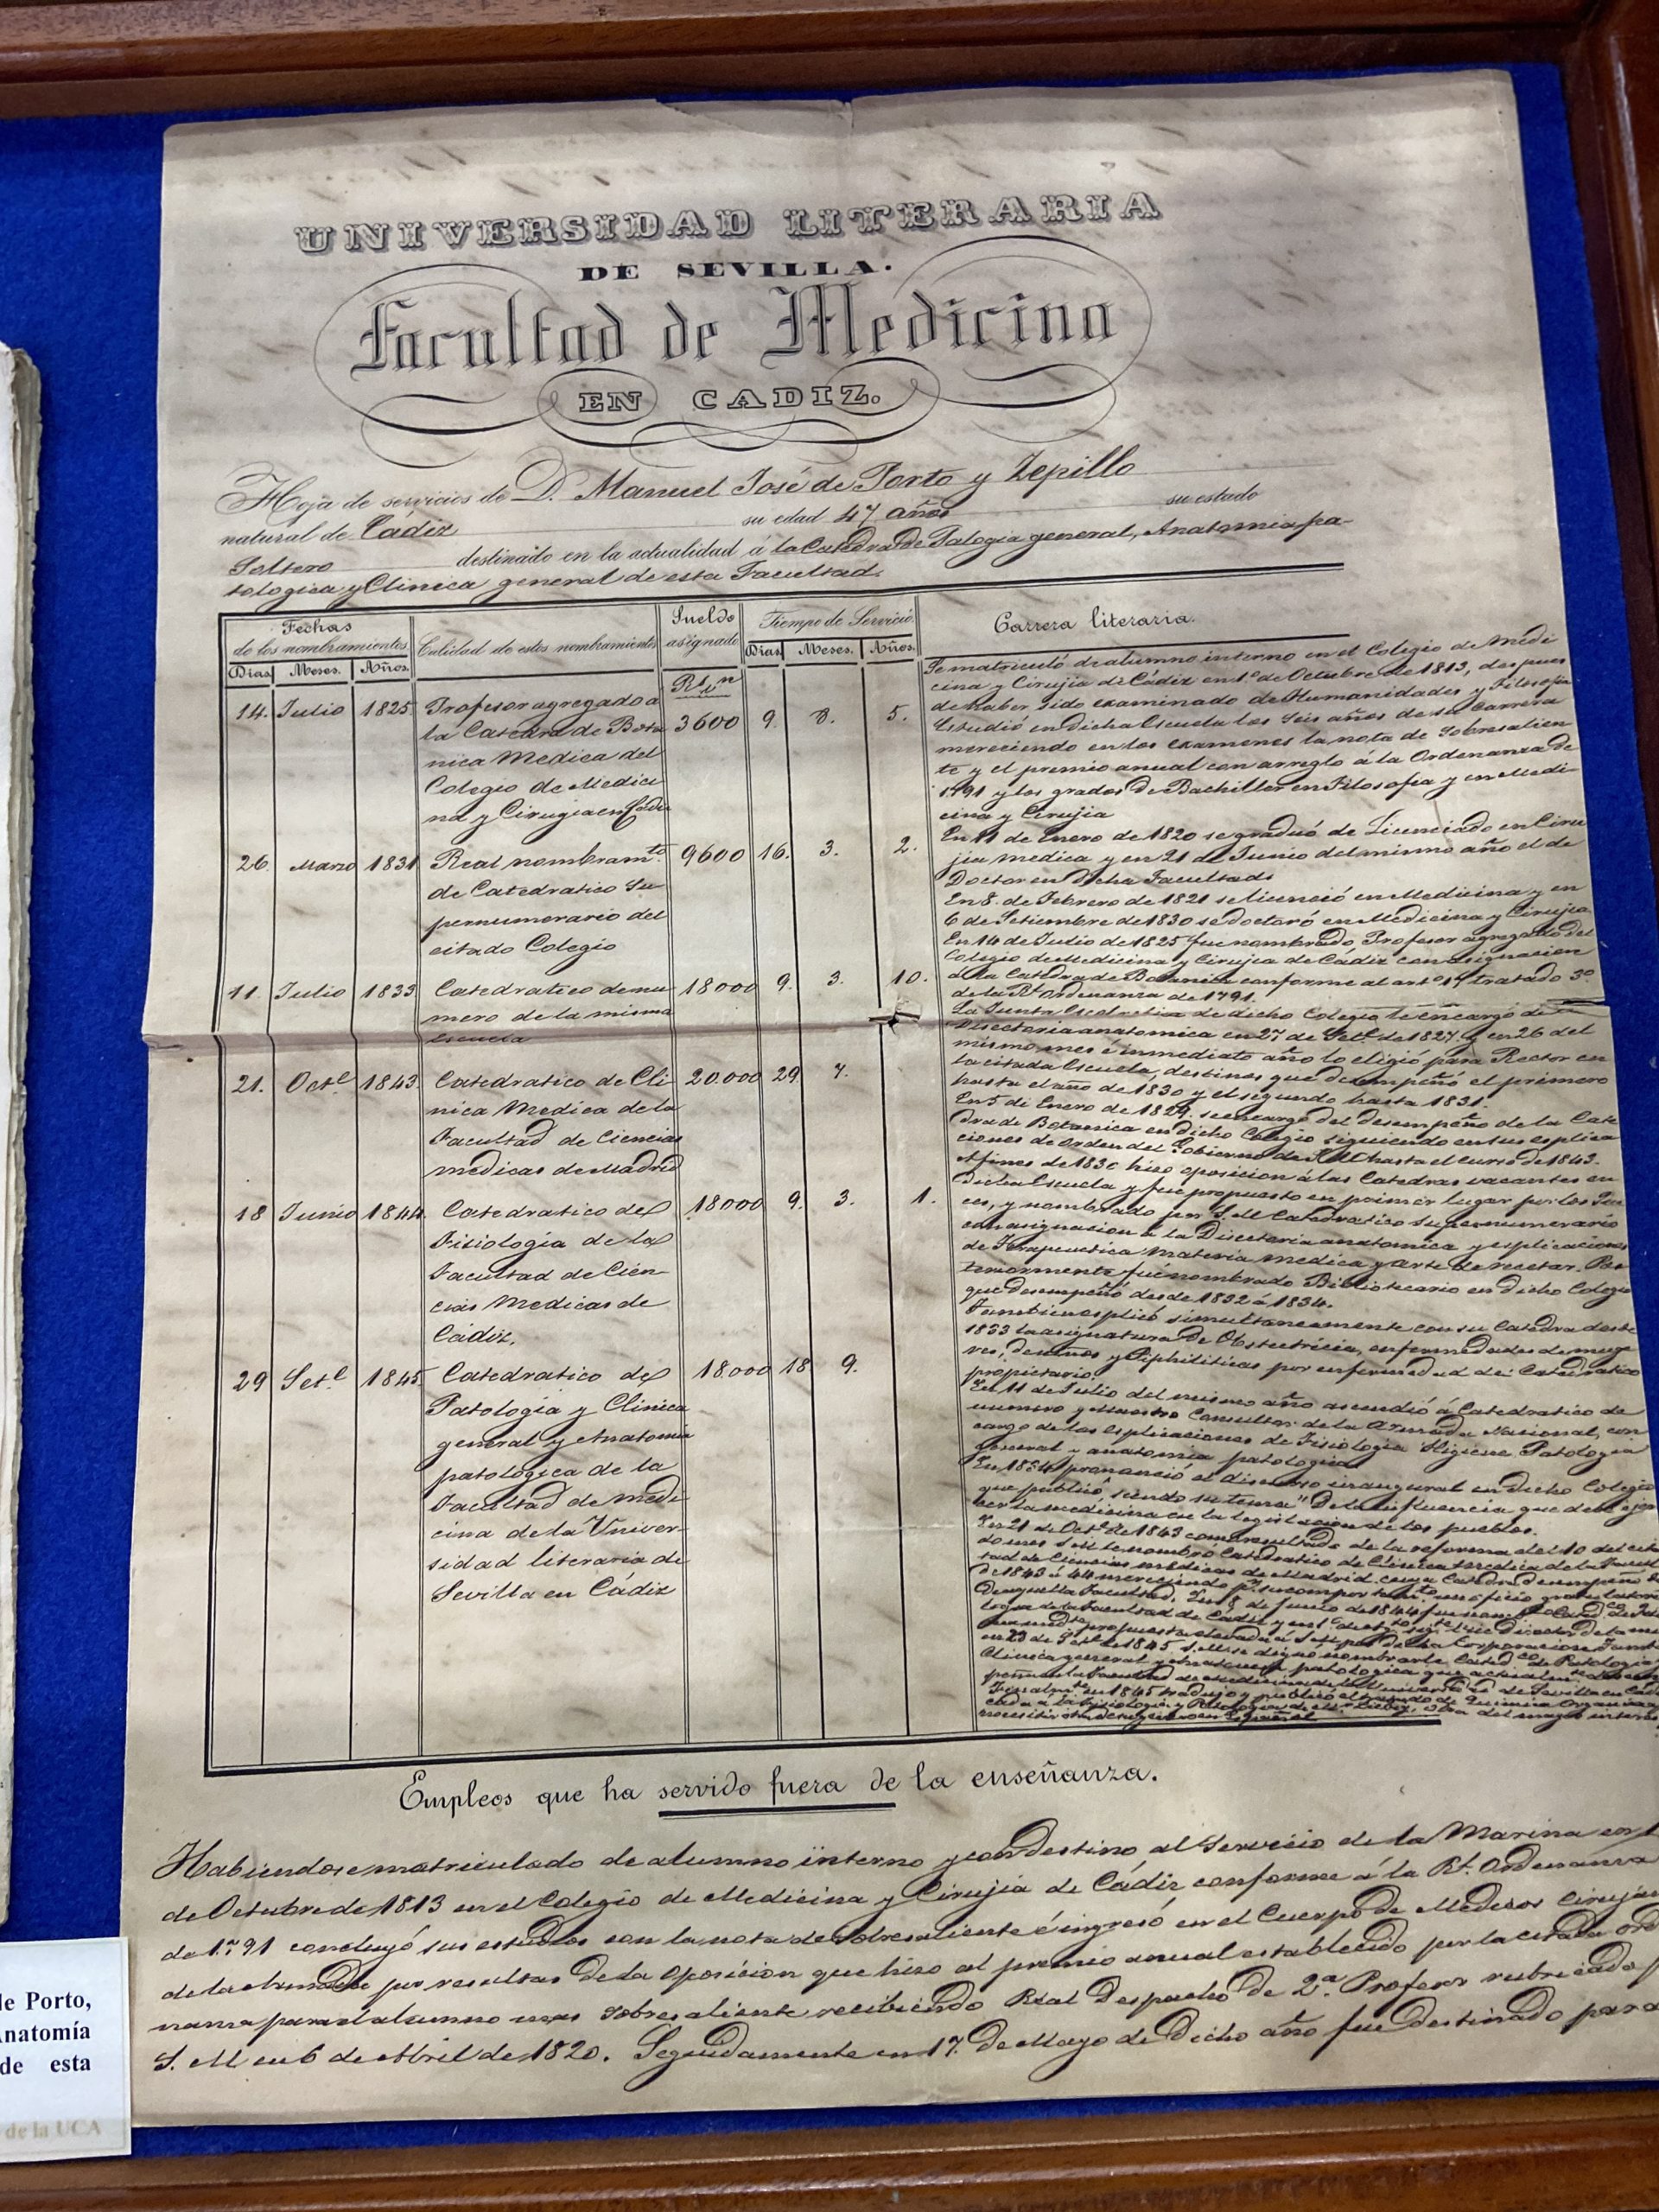 UNIVERSIDAD LITERARIA
DE SEVILLA.
Facultad de Medicina
EN CADIZ.
Hoja de servicios de D. Manuel José de Porto y Zepillo
natural de Cádiz su edad 47 años su estado
Soltero destinado en la actualidad á la Catedra de Patologia general, Anatomia pa-
tologica y Clinica general de esta Facultad.
Fechas
de los nombramientos.
Dias Meses. Años.
Calidad de estos nombramientos
Sueldo
asignado
Tiempo de Servicio.
Dias Meses. Años.
Carrera literaria.
Rs. vn
14. Julio 1825 Profesor agregado a 3600 9. 8. 5.
la Catedra de Bota
nica Medica del
Colegio de Medici
na y Cirugia en Cadiz
26. Marzo 1831 Real nombramto. 9600 16. 3. 2.
de Catedratico Su
pernumerario del
citado Colegio
11. Julio 1833 Catedratico de nu 18000 9. 3. 10.
mero de la misma
Escuela
21. Oct.e 1843. Catedratico de Cli 20.000 29. 7.
nica Medica de la
Facultad de Ciencias
medicas de Madrid
18 Junio 1844. Catedratico de 18000 9. 3. 1.
Fisiologia de la
Facultad de Cien
cias Medicas de
Cádiz.
29 Set.e 1845. Catedratico de 18.000 18 9.
Patologia y Clinica
general y Anatomia
patologica de la
Facultad de medi
cina de la Univer-
sidad literaria de
Sevilla en Cádiz
Se matriculó de alumno interno en el Colegio de Medi
cina y Cirujia de Cádiz en 1.o de Octubre de 1813, despues
de haber sido examinado de Humanidades y Filosofia
Estudió en dicha Escuela los seis años de su Carrera
mereciendo en los examenes la nota de Sobresalien
te y el premio anual con arreglo á la Ordenanza de
1791 y los grados de Bachiller en Filosofia y en Medi
cina y Cirujia
En 11 de Enero de 1820 se graduó de Licenciado en Ciru
jia medica y en 21 de Junio del mismo año el de
Doctor en dicha Facultad
En 8. de Febrero de 1821 se licenció en Medicina y en
6 de Setiembre de 1830 se doctoró en Medicina y Cirujia
En 14 de Julio de 1825 fue nombrado Profesor agregado del
Colegio de Medicina y Cirujia de Cádiz con asignacion
á la Catedra de Botanica conforme al art.o 14 tratado 3.o
de la Rl. Ordenanza de 1791.
La Junta Escolastica de dicho Colegio le encargó de
Disectoria anatomica en 27 de Set.e de 1827. y en 26 del
mismo mes é inmediato año lo eligió para Rector en
la citada Escuela, destinos que desempeñó el primero
hasta el año de 1830 y el segundo hasta 1831.
En 5 de Enero de 1829. se encargó del desempeño de la Cate
dra de Botanica en dicho Colegio siguiendo en sus esplica
ciones de orden del Gobierno de S.M. hasta el curso de 1843.
A fines de 1830 hizo oposicion á las Catedras vacantes en
dicha Escuela y fue propuesto en primer lugar por los Jue
ces, y nombrado por S.M. Catedratico supernumerario
con asignacion á la Disectoria anatomica y esplicaciones
de Terapeutica materia medica y arte de recetar. Pos
teriormente fué nombrado Bibliotecario en dicho Colegio
que desempeñó desde 1832 á 1834.
Tambien esplicó simultaneamente con su Catedra desde
1833 la asignatura de Obstetricia, enfermedades de muge
res, de niños y Siphiliticas por enfermedad del Catedratico
propietario
En 11 de Julio del mismo año ascendió á Catedratico de
numero y Maestro Consultor de la Armada Nacional, con
cargo de las esplicaciones de Fisiologia Higiene Patologia
general y anatomia patologica
En 1834 pronunció el discurso inaugural en dicho Colegio
que publicó, siendo su tema "De la influencia que debe ejer
cer la medicina en la legislacion de los pueblos.
En 21 de Oct.e de 1843 como resultado de la reforma del 10 del cita
do mes S.M. le nombró Catedratico de Clinica medica de la Facul
tad de Ciencias medicas de Madrid cuya Catedra desempeñó
de 1843 á 44 mereciendo
de aquella Facultad. En 8 de Junio de 1844
logia de la Facultad de Cadiz
en 29 de Set.e de 1845 S.M. se dignó nombrarle Catedco. de Patologia
Clinica general y Anatomia patologica que actualmte.
Facultad de medicina de la Universidad de Sevilla en Cadiz
en 1845 tradujo y publicó el tratado de Quimica Organica
á la Fisiologia y Patologia de Mr. Liebig, obra del mayor interes
Empleos que ha servido fuera de la enseñanza.
Habiendose matriculado de alumno interno y con destino al Servicio de la Marina en 1
de Octubre de 1813 en el Colegio de Medicina y Cirujia de Cádiz conforme á la Rl. Ordenanza
de 1791 concluyó sus estudios con la nota de sobresaliente é ingresó en el Cuerpo de Medicos Cirujan
de la Armada por resultas de la oposicion que hizo al premio anual establecido por la citada ord
nanza para el alumno mas sobresaliente recibiendo Real Despacho de 2.o Profesor rubricado p
S. M. en 6 de Abril de 1820. Seguidamente en 17. de Mayo de dicho año fue destinado para
de Porto,
Anatomía
de esta
de la UCA